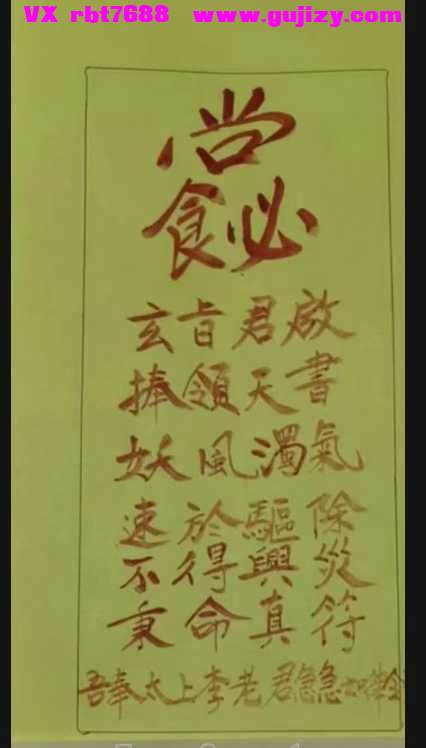 VX rbt7688 www.gujizy.com
尚
食必
玄旨君啟
捧領天書
妖風濁氣
速於驅除
不得興災
秉命真符
吾奉太上李老君急急如律令